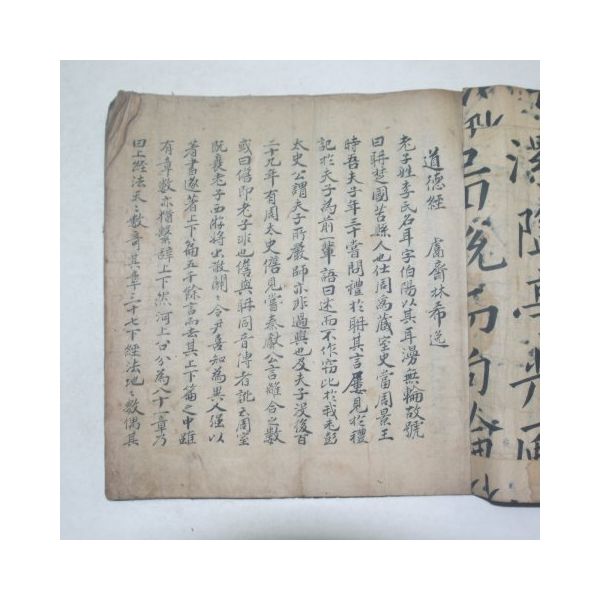 道德經 鬳齋林希逸
老子姓李氏名耳字伯陽以其耳漫無輪故號
曰耼楚國苦縣人也仕周爲藏室史當周景王
時吾夫子年三十嘗問禮於耼其言屢見於禮
記於夫子為前一輩語曰述而不作竊比於我老彭
太史公謂夫子所嚴師亦非過與也及夫子沒後百
二十九年有周太史儋見嘗秦獻公言離合之數
或曰儋即老子非也儋與耼同音傳者訛云周室
旣衰老子西游將出散關關令尹喜知為異人强以
著書遂著上下篇五千餘言而去其上下篇之中雖
有章數亦猶繫辭上下然河上公分為八十一章乃
曰上經法天天數奇其章三十七下經法地地數偶其